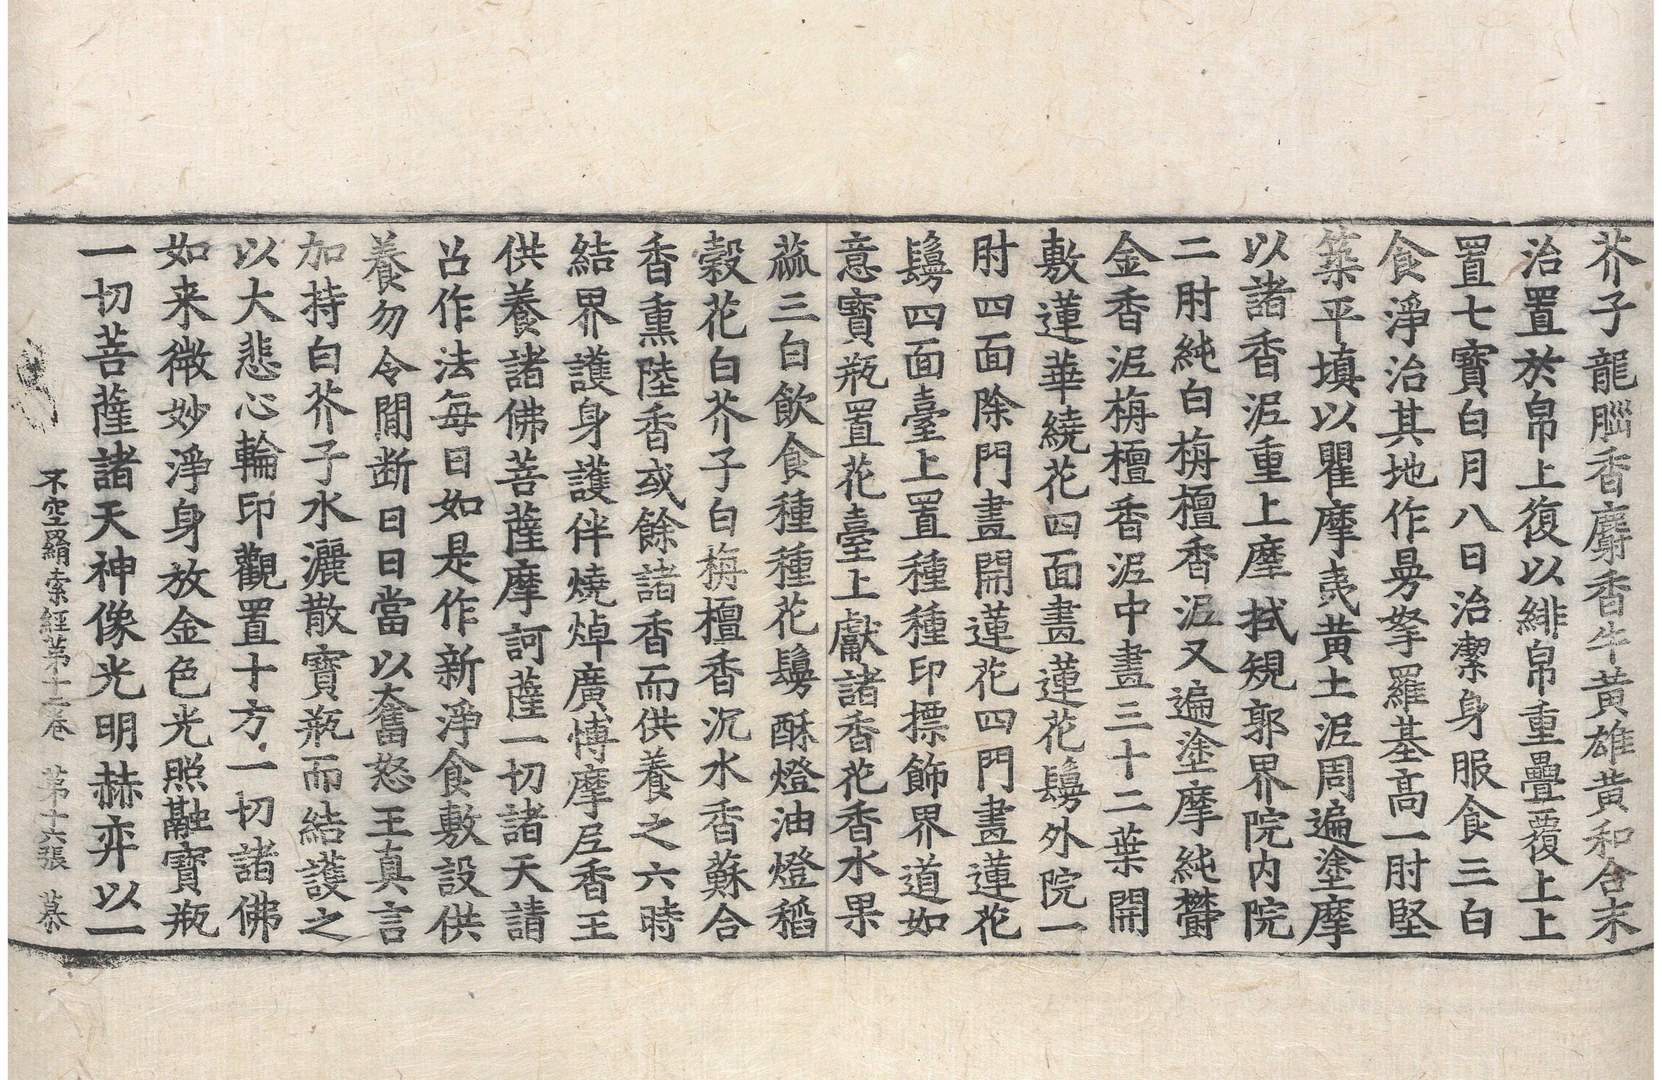 芥子龍腦香麝香牛黃雄黃和合末
治置於帛上復以緋帛重疊覆上上
置七寶白月八日治潔身服食三白
食淨治其地作曼拏羅基高一肘堅
築平填以瞿摩夷黃土泥周遍塗摩
以諸香泥重上摩拭規郭界院内院
二肘純白栴檀香泥又遍塗摩純欝
金香泥栴檀香泥中畫三十二葉開
敷蓮華繞花四面畫蓮花鬘外院一
肘四面除門畫開蓮花四門畫蓮花
鬘四面臺上置種種印摽飾界道如
意寶瓶置花臺上獻諸香花香水果
蓏三白飲食種種花鬘酥燈油燈稻
穀花白芥子白栴檀香沉水香蘇合
香熏陸香或餘諸香而供養之六時
結界護身護伴燒焯廣愽摩尼香王
供養諸佛菩薩摩訶薩一切諸天請
召作法每日如是作新淨食敷設供
養勿令閒断日日當以奮怒王真言
加持白芥子水灑散寶瓶而結護之
以大悲心輪印觀置十方一切諸佛
如来微妙淨身放金色光照融寶瓶
一切菩薩諸天神像光明赫弈以一
不空羂索經苐十二卷 苐十六張 慕